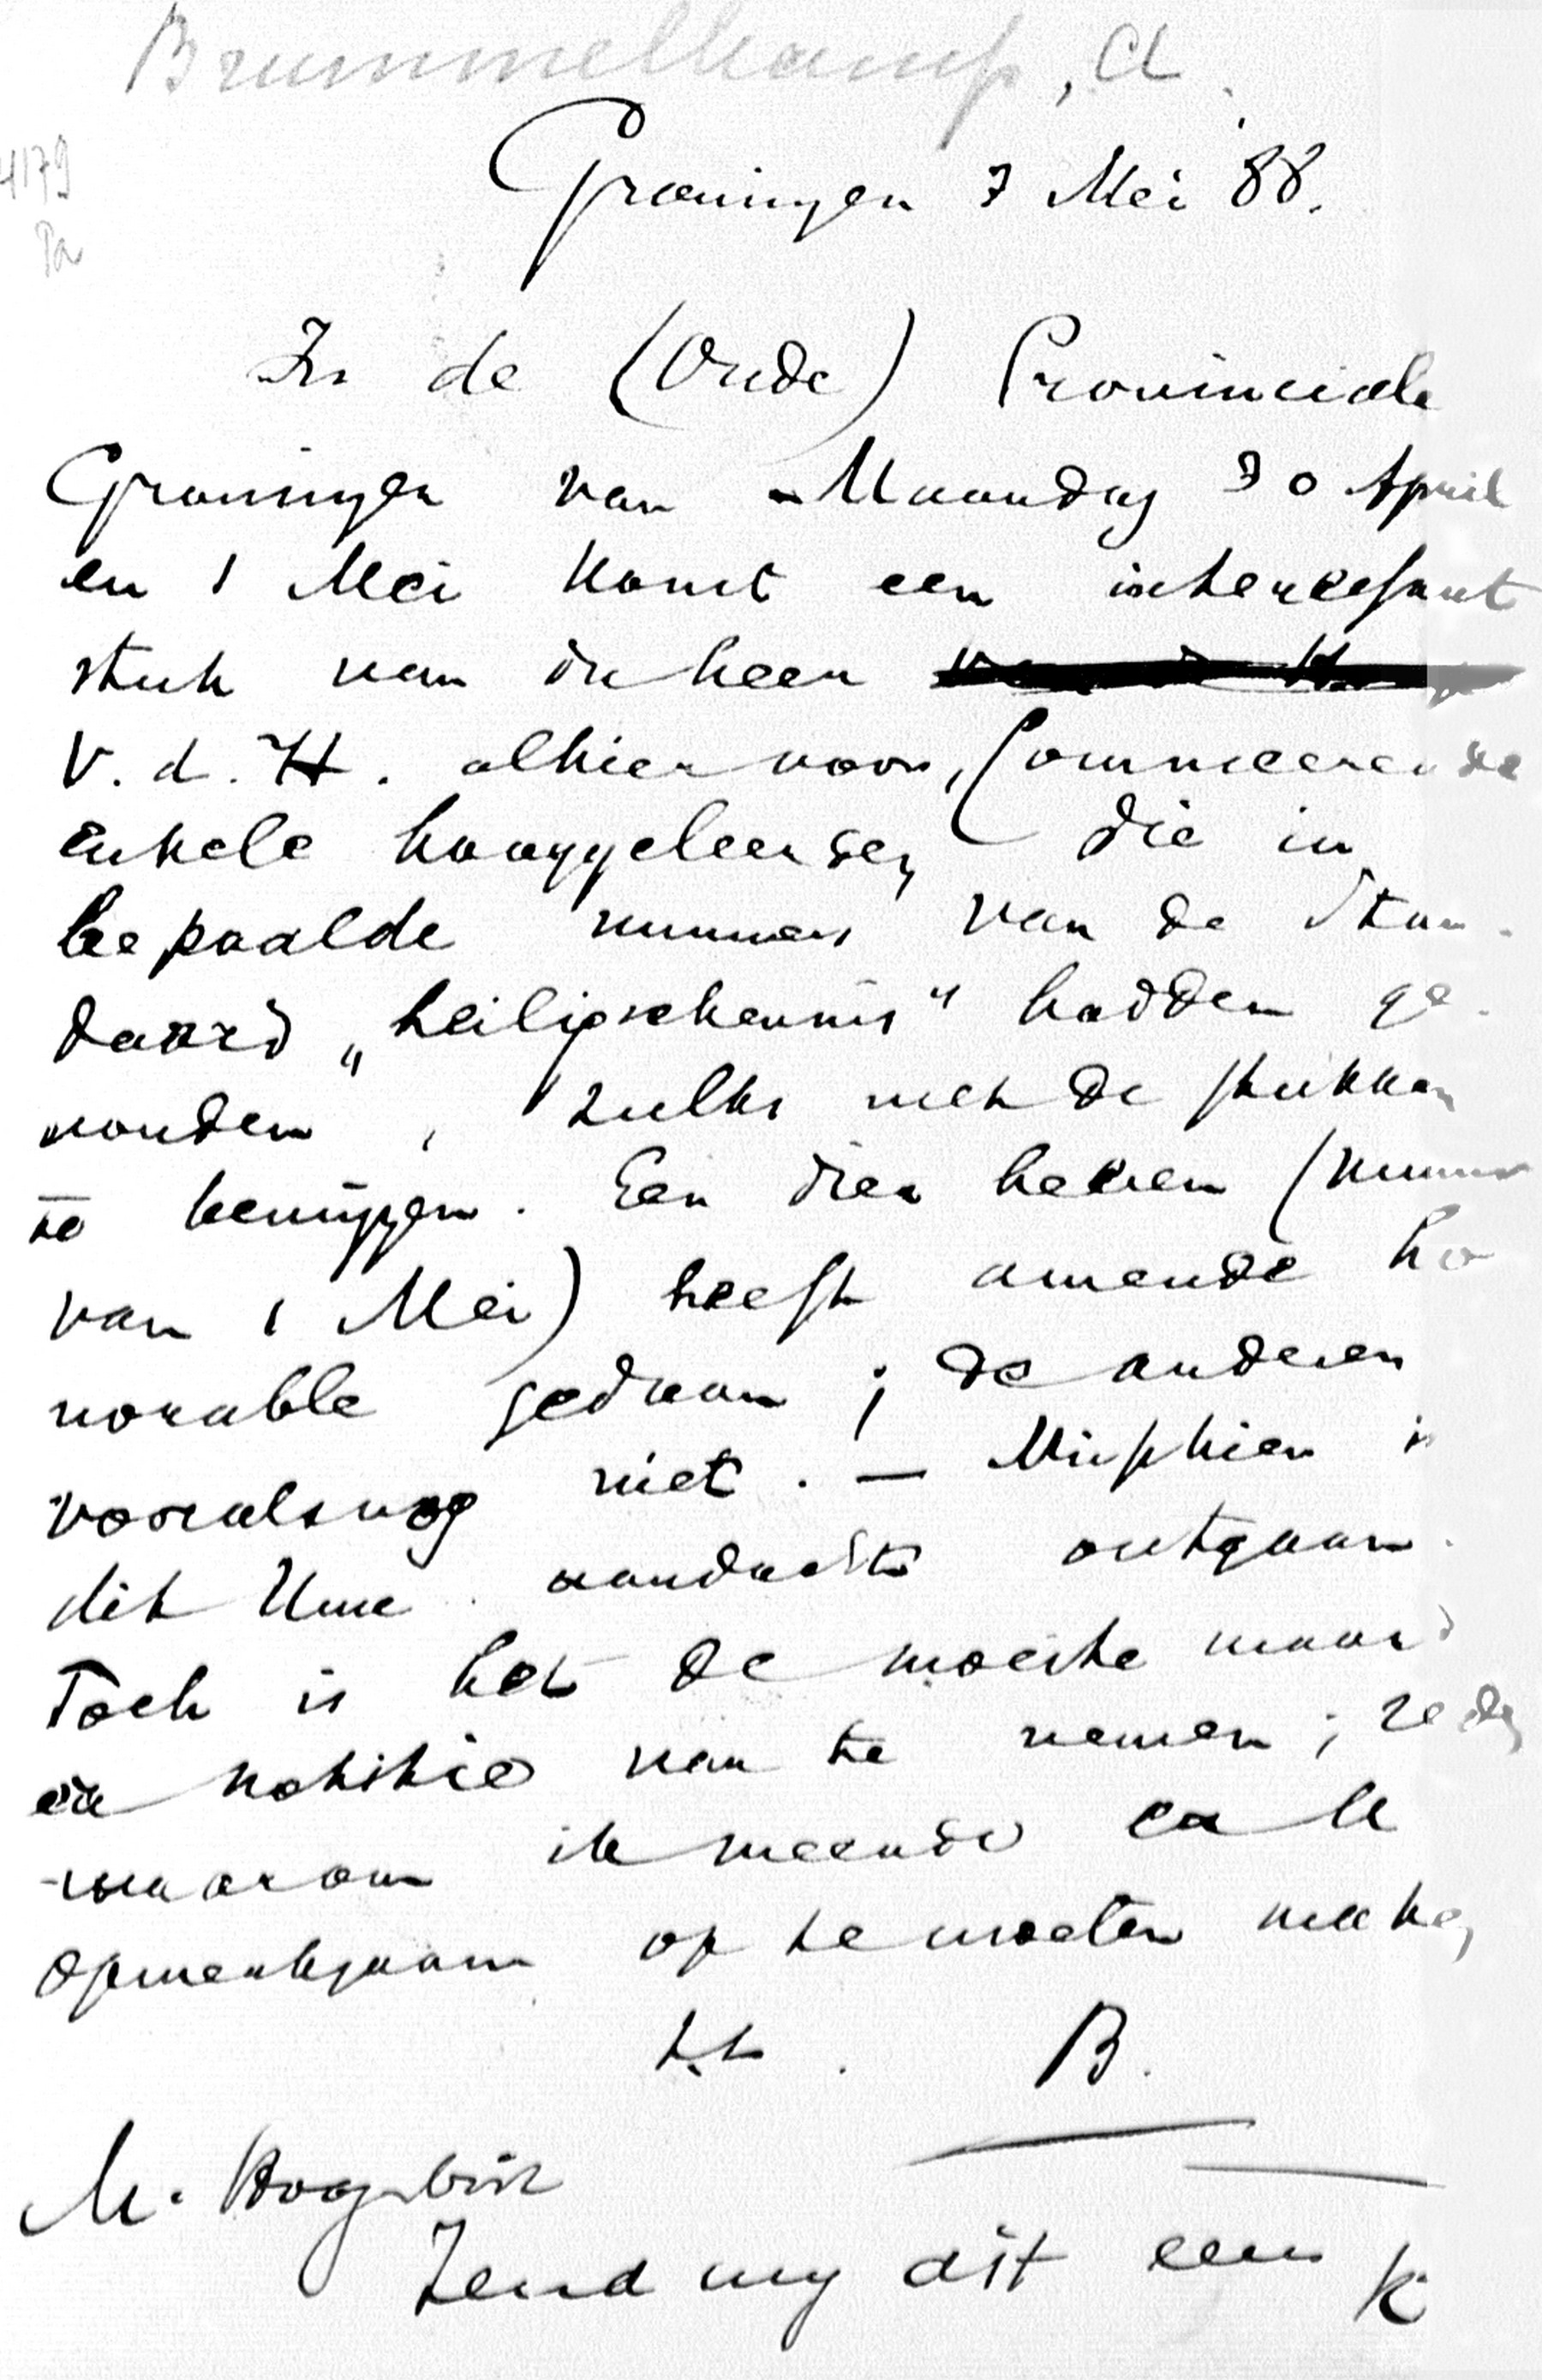 Brummelkamp, A.
4179
Pa
Groningen 7 Mei '88.
In de (Oude) Provinciale
Groninger van Maandag 30 April
en 1 Mei komt een interessant
stuk van den heer
V. d. H. alhier voor, sommeerende
enkele hooggeleerden, die in
bepaalde nummers van de Stan-
daard „heiligschennis" hadden ge-
vonden, zulks met de stukken
te bewijzen. Een dier heeren (nummer
van 1 Mei) heeft amende ho
norable gedaan; de anderen
vooralsnog niet. — Misschien is
dit Uwe aandacht ontgaan.
Toch is het de moeite waard
er notitie van te nemen; reden
waarom ik meende er U
opmerkzaam op te moeten maken
tt. B.
M.
Zend my dit eens
K